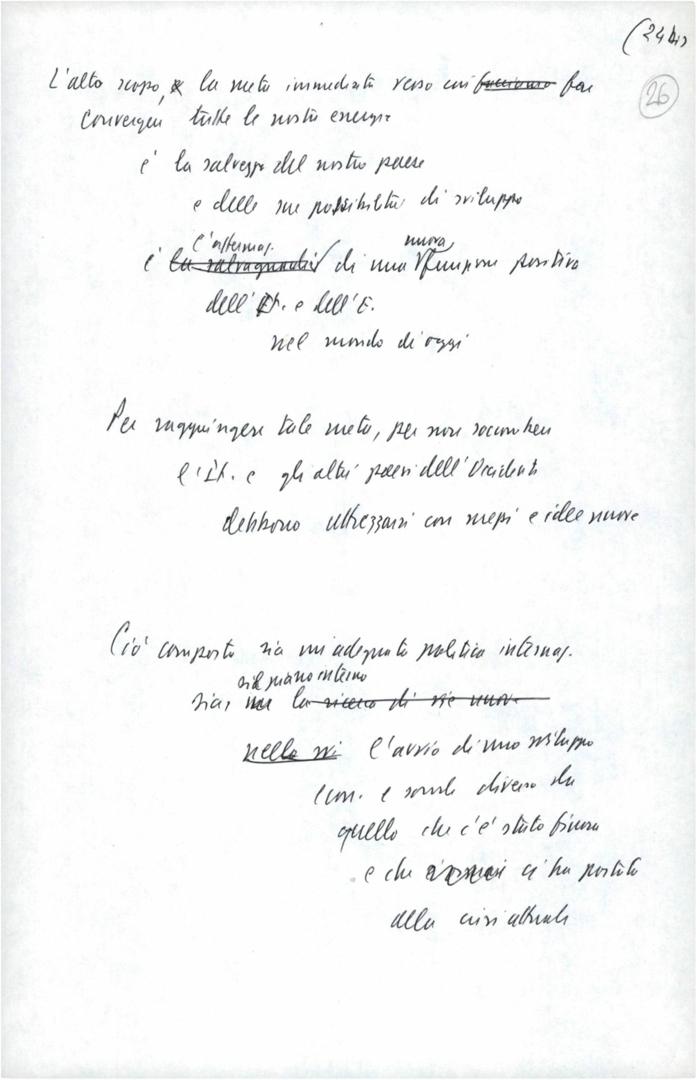 (24 bis
26
L'alto scopo, la meta immediata verso cui facciamo far
convergere tutte le nostre energie
è la salvezza del nostro paese
e delle sue possibilità di sviluppo
l'affermaz. nuova
è la salvaguardia di una funzione positiva
dell'It. e dell'E.
nel mondo di oggi
Per raggiungere tale meta, per non soccombere
l'It. e gli altri paesi dell'Occidente
debbono attrezzarsi con mezzi e idee nuove
Ciò comporta sia un'adeguata politica internaz.
sul piano interno
sia, la ricerca di vie nuove
nello svi l'avvio di uno sviluppo
econ. e sociale diverso da
quello che c'è stato finora
e che ci ha portato
alla crisi attuale